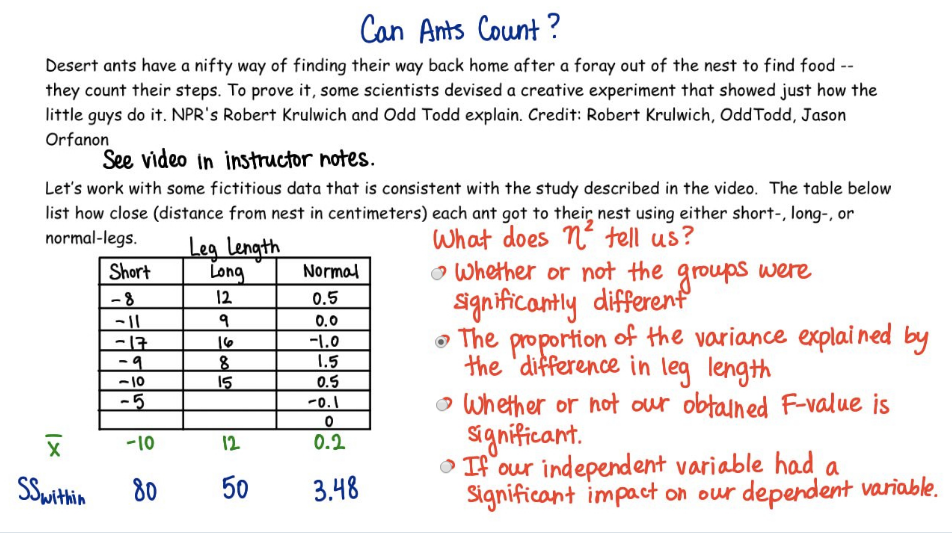 Can Ants Count?
Desert ants have a nifty way of finding their way back home after a foray out of the nest to find food --
they count their steps. To prove it, some scientists devised a creative experiment that showed just how the
little guys do it. NPR's Robert Krulwich and Odd Todd explain. Credit: Robert Krulwich, OddTodd, Jason
Orfanon
See video in instructor notes.
Let's work with some fictitious data that is consistent with the study described in the video. The table below
list how close (distance from nest in centimeters) each ant got to their nest using either short-, long-, or
normal-legs.
Leg Length
Short Long Normal
-8 12 0.5
-11 9 0.0
-17 16 -1.0
-9 8 1.5
-10 15 0.5
-5 -0.1
0
x̅ -10 12 0.2
SSwithin 80 50 3.48
What does η² tell us?
Whether or not the groups were
significantly different
The proportion of the variance explained by
the difference in leg length
Whether or not our obtained F-value is
significant.
If our independent variable had a
significant impact on our dependent variable.